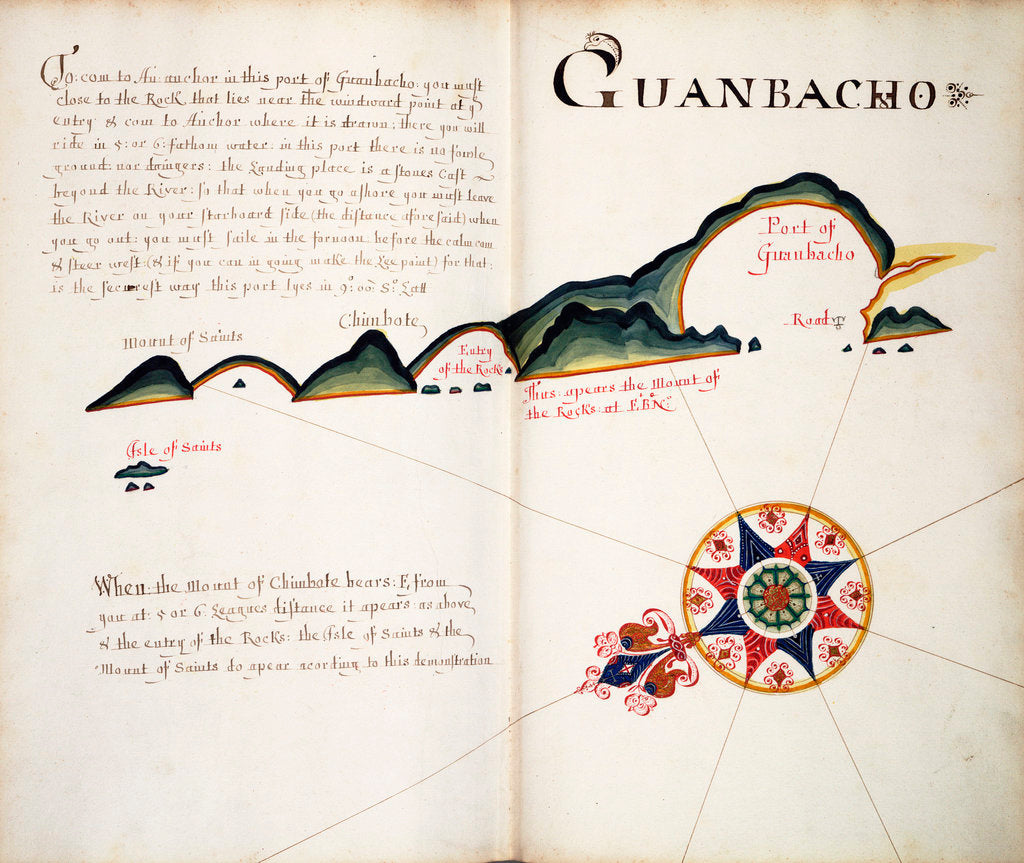 To: com to An: anchor in this port of Guanbacho: you must
close to the Rock that lies near the windward point at yͤ
entry & com to Anchor where it is drawn; there you will
ride in 5: or 6: fathom water: in this port there is no fowle
ground: nor daingers: the Landing place is a stones Cast
beyond the River: so that when you go ashore you must leave
the River on your starboard side (the distance aforesaid) when
you go out: you must saile in the fornoon: before the calm com
& steer west: (& if you can in going make the Lee point) for that:
is the securest way this port lyes in 9°: 00: S°: Latt
GUANBACHO
Port of
Guanbacho
Road
Mount of Saints
Chimbote
Entry
of the Rocks
Thus: apears the Mount of
the Rocks: at E:B:N°:
Isle of Saints
When: the Mount of Chimbote bears: E, from
you at: 5 or 6: Leagues distance it apears: as above
& the entry of the Rocks: the Isle of Saints & the
Mount of Saints do apear acording to this demonstration